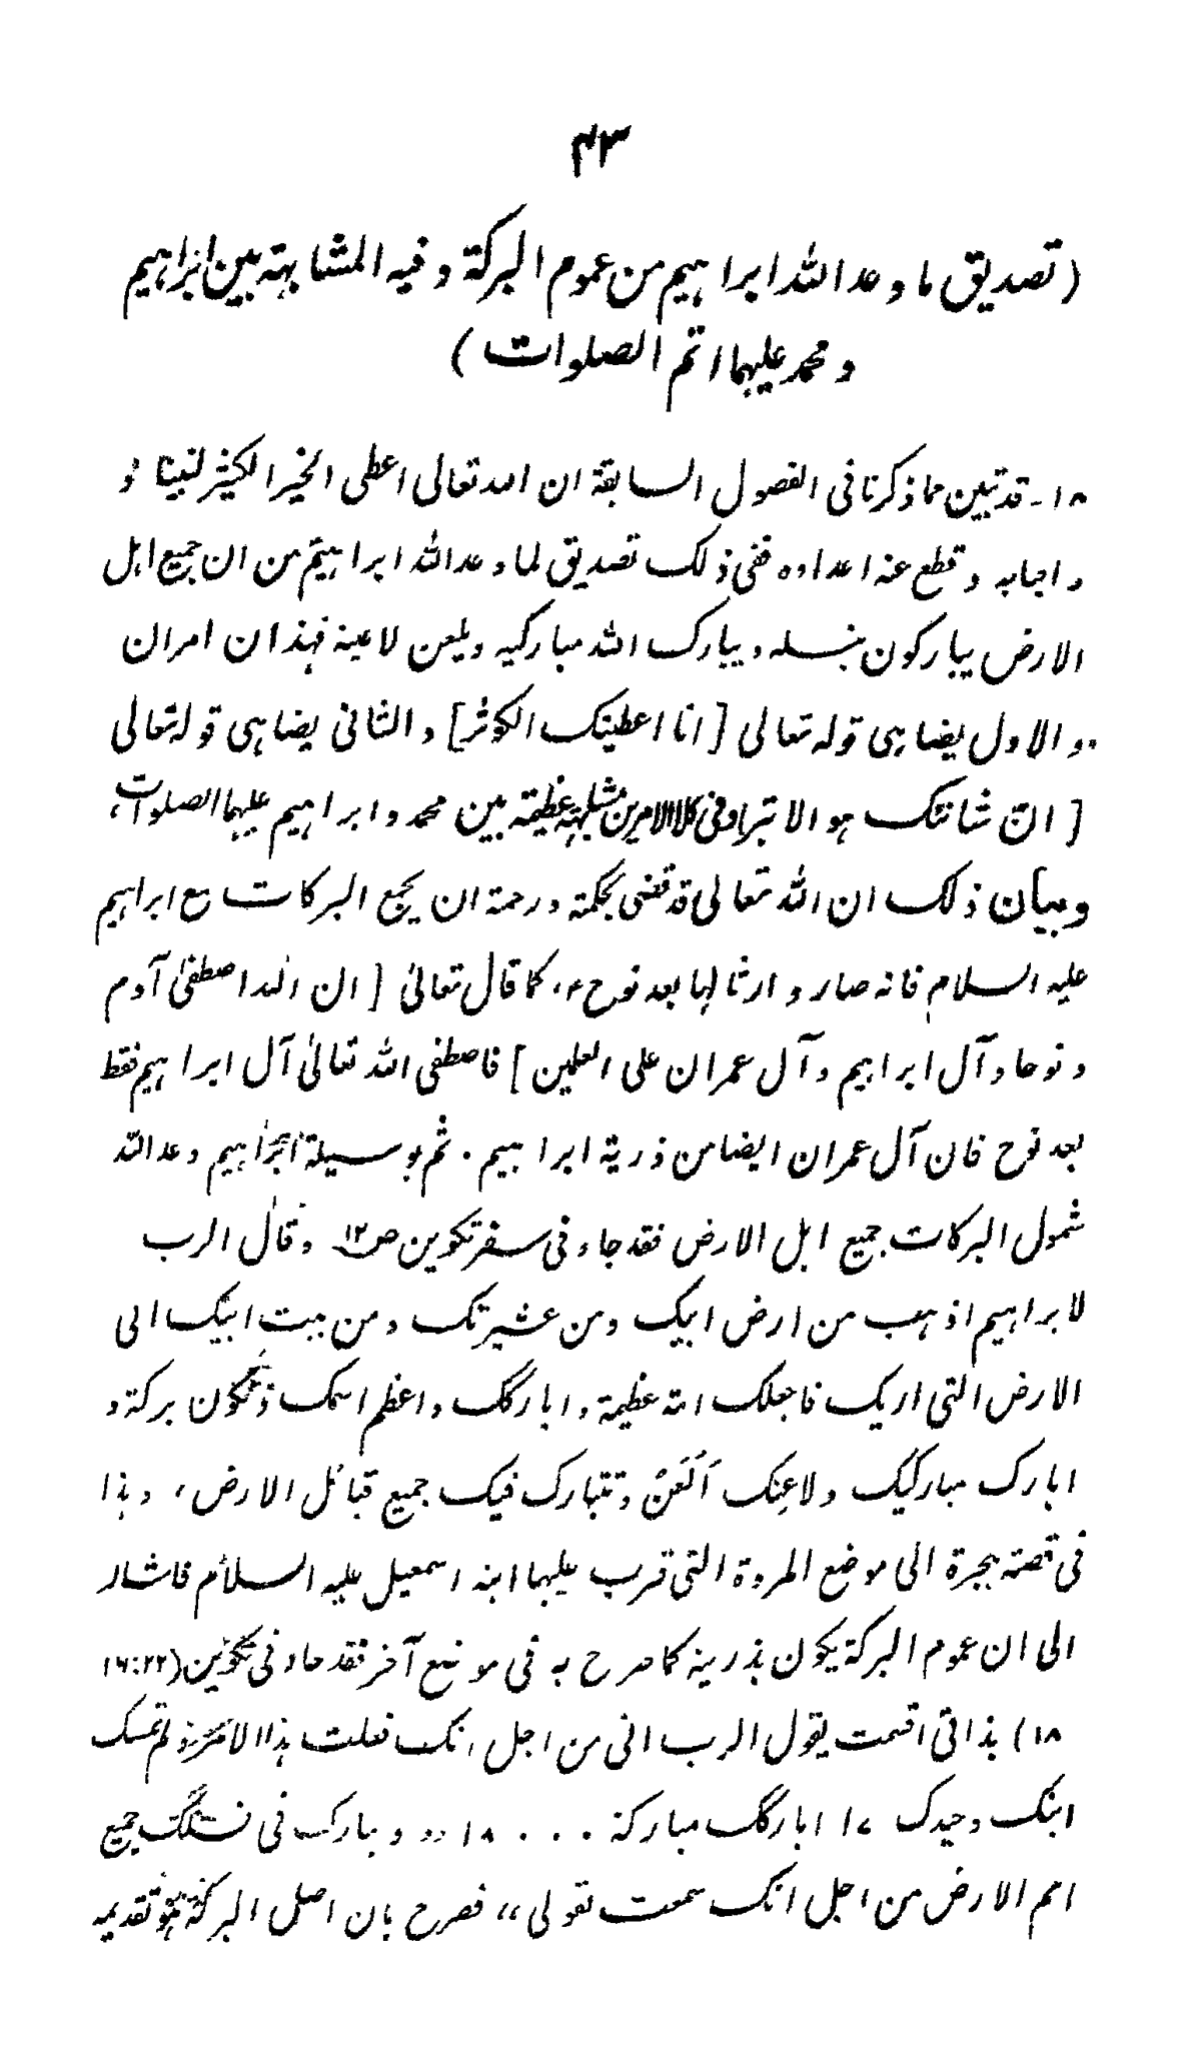 ۴۳
(تصدیق ما وعد الله ابراهیم من عموم البركة وفیه المشابهة بین ابراهیم
ومحمد علیهما اتم الصلوات)
۱۸- قد تبین مما ذكرنا فی الفصول السابقة ان الله تعالى اعطى الخیر الكثیر لنبینا و
واحبابه وقطع عنه اعداءه ففی ذلك تصدیق لما وعد الله ابراهیم من ان جمیع اهل
الارض یباركون بنسله ویبارك الله مباركیه ویلعن لاعنیه فهذان امران
والاول یضاهی قوله تعالى [انا اعطینك الكوثر] والثانی یضاهی قوله تعالى
[انّ شانئك هو الابتر] وفی كلا الامرین مشابهة عظیمة بین محمد وابراهیم علیهما الصلوات،
وبیان ذلك ان الله تعالى قد قضى بحكمته ورحمته ان یجمع البركات مع ابراهیم
علیه السلام فانه صار وارثا لها بعد نوح ؑ، كما قال تعالىٰ [ان الله اصطفىٰ آدم
ونوحا وآل ابراهیم وآل عمران على العلمین] فاصطفى الله تعالىٰ آل ابراهیم فقط
بعد نوح فان آل عمران ایضا من ذریة ابراهیم. ثم بوسیلة ابراهیم وعد الله
شمول البركات جمیع اهل الارض فقد جاء فی سفر تكوین ص۱۲ وقال الرب
لابراهیم اذهب من ارض ابیك ومن عشیرتك ومن بیت ابیك الى
الارض التی اریك فاجعلك امة عظیمة واباركك واعظم اسمك وتكون بركة و
ابارك مباركیك ولاعِنك اَلْعَنُ وتتبارك فیك جمیع قبائل الارض، وهذا
فی قصة هجرة الى موضع المروة التی قرب علیها ابنه اسمعیل علیه السلام فاشار
الى ان عموم البركة یكون بذریته كما صرح به فی موضع آخر فقد جاء فی تكوین (۱۶:۲۲
۱۸) بذاتی اقسمت یقول الرب انی من اجل انك فعلت هذا الامر ولم تمسك
ابنك وحیدك ۱۷ اباركك مباركة ... ۱۸ ،، ویبارك فی نسلك جمیع
امم الارض من اجل انك سمعت لقولی،، فصرح بان اصل البركة هو تقدیمه